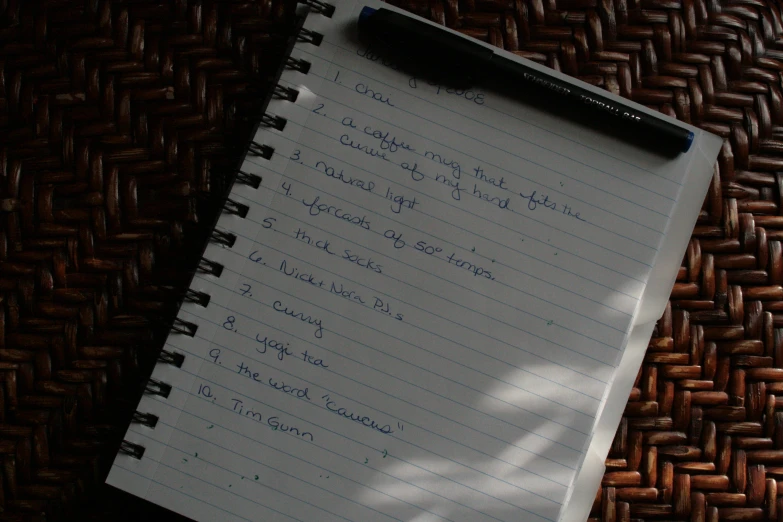 1. chai
2. a coffee mug that fits the
curve of my hand.
3. natural light
4. forcasts of 50° temps.
5. thick socks
6. Nick + Nora P.J.s
7. curry
8. yogi tea
9. the word "caucus"
10. Tim Gunn